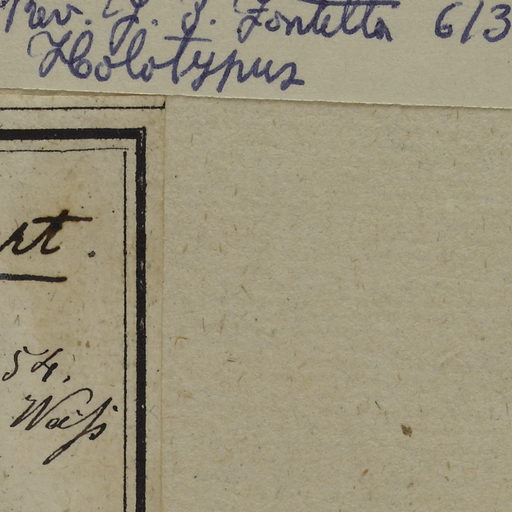 Rev. J. J. Zontetta 613
Holotypus
rt.
54.
Weiß